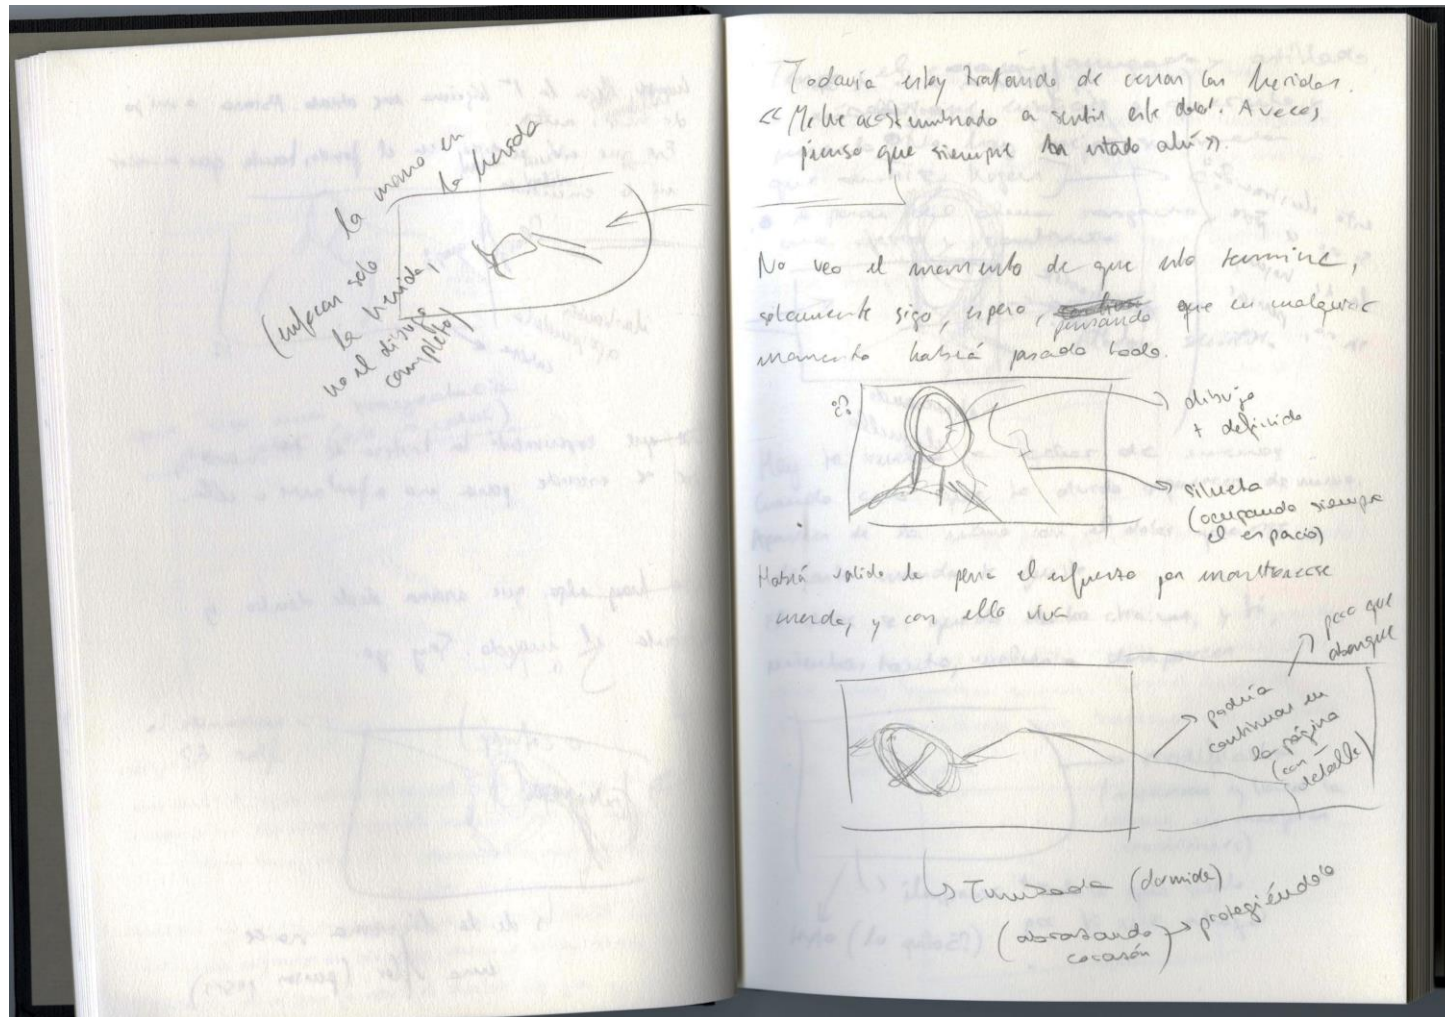 la mano en
la herida
(enfocar solo
la herida,
no el dibujo
completo)
Todavía estoy tratando de cerrar las heridas.
<< Me he acostumbrado a sentir este dolor. A veces,
pienso que siempre ha estado ahí >>.
No veo el momento de que esto termine,
solamente sigo, espero, pensando que en cualquier
momento habrá pasado todo.
¿?
dibujo
+ definido
silueta
(ocupando siempre
el espacio)
Habrá valido la pena el esfuerzo por mantenerse
y con ello viva
para que
abarque
podría
continuar en
la página
(con
detalle)
Tumbada (dormida)
(abrazando → protegiéndolo
corazón)